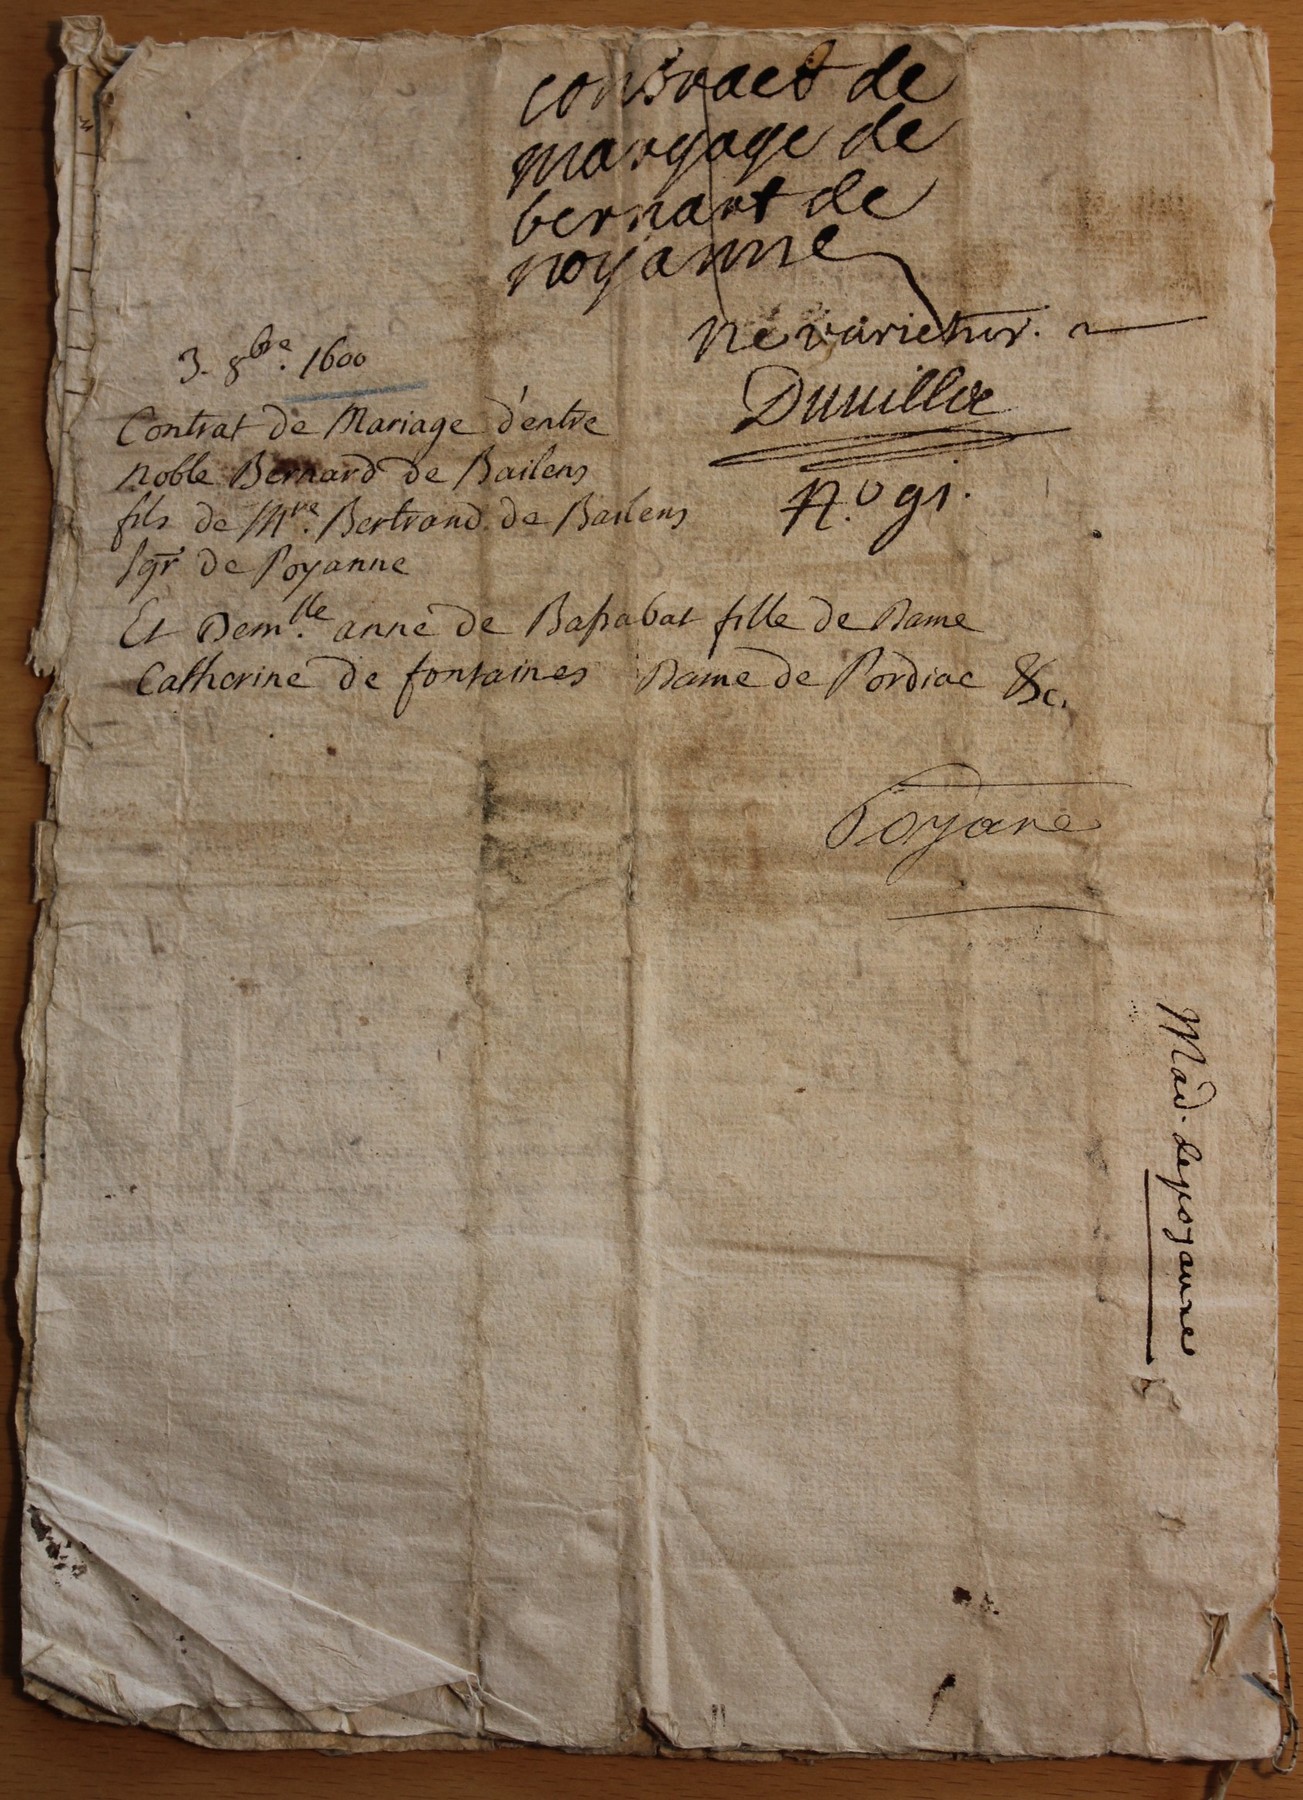 contract de
maryage de
bernart de
poyanne
ne varietur.
Duuillié
N.o 91.
3. 8bre. 1600
Contrat de Mariage d'entre
noble Bernard de Bailens
fils de Mre. Bertrand de Bailens
sgr de Poyanne
Et Demlle. anne de Bassabat fille de Dame
Catherine de fontaines Dame de Pordiac &c.
Poyane
Mad. de poyanne